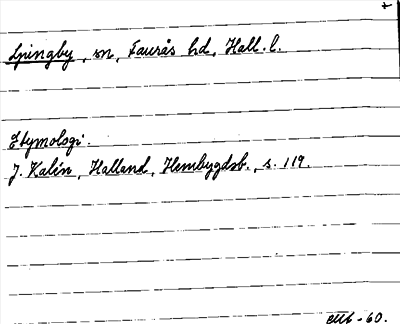 Ljungby, sn, Faurås hd, Hall. l.
Etymologi.
J. Kalén, Halland, Hembygdsb., s. 119.